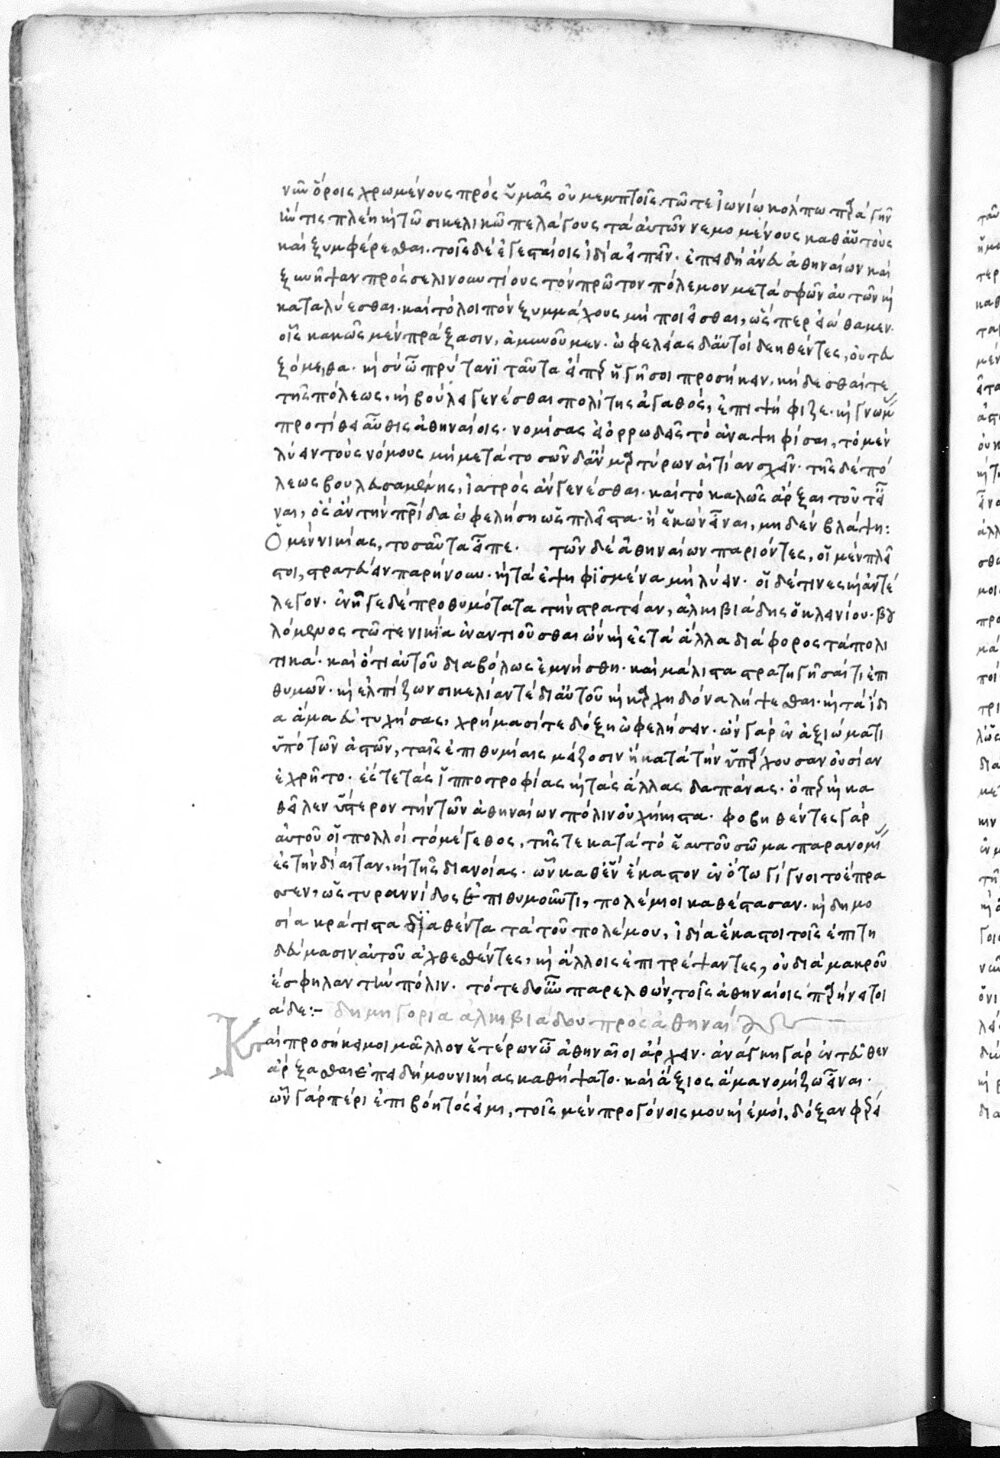 νῦν ὅροις χρωμένους πρὸς ὑμᾶς οὐ μεμπτοῖς. τῶ τε ἰωνίω κόλπω παρὰ γῆν
ἤν τις πλέη καὶ τῶ σικελικῶ πελάγους τὰ αὑτῶν νεμομένους καθ' αὑτοὺς
καὶ ξυμφέρεσθαι. τοῖς δὲ ἐγεσταίοις ἰδία εἰπεῖν. ἐπειδὴ ἄνευ ἀθηναίων καὶ
ξυνῆψαν πρὸς σελινουντίους τὸν πρῶτον πόλεμον μετὰ σφῶν αὐτῶν καὶ
καταλύεσθαι. καὶ τὸ λοιπὸν ξυμμάχους μὴ ποιεῖσθαι, ὥσπερ εἰώθαμεν.
οἷς κακῶς μὲν πράξασιν, ἀμυνοῦμεν. ὠφελείας δ' αὐτοὶ δεηθέντες, οὐ τευ
ξόμεθα. καὶ σὺ ὦ πρύτανι ταῦτα εἴπερ ἡγῆ σοι προσήκειν, κήδεσθαί τε
τῆς πόλεως, καὶ βούλει γενέσθαι πολίτης ἀγαθός, ἐπιψήφιζε. καὶ γνώμας
προτίθει αὖθις ἀθηναίοις. νομίσας εἰ ὀρρωδεῖς τὸ ἀναψηφίσαι, τὸ μὲν
λύειν τοὺς νόμους μὴ μετὰ τοσῶνδ' ἂν μαρτύρων αἰτίαν σχεῖν. τῆς δὲ πό
λεως βουλευσαμένης, ἰατρὸς ἂν γενέσθαι. καὶ τὸ καλῶς ἄρξαι τοῦτ' εἶ
ναι, ὃς ἂν τὴν πατρίδα ὠφελήση ὡς πλεῖστα. ἢ ἑκὼν εἶναι, μηδὲν βλάψη:
Ὁ μὲν νικίας, τοσαῦτα εἶπε. τῶν δὲ ἀθηναίων παριόντες, οἱ μὲν πλεῖ
στοι, στρατεύειν παρήνουν. καὶ τὰ ἐψηφισμένα μὴ λύειν. οἱ δέ τινες καὶ ἀντέ
λεγον. ἐνῆγε δὲ προθυμότατα τὴν στρατείαν, ἀλκιβιάδης ὁ κλεινίου. βου
λόμενος τῶ τε νικία ἐναντιοῦσθαι ὢν καὶ ἐς τὰ ἄλλα διάφορος τὰ πολι
τικά. καὶ ὅτι αὐτοῦ διαβόλως ἐμνήσθη. καὶ μάλιστα στρατηγῆσαί τε ἐπι
θυμῶν. καὶ ἐλπίζων σικελίαν τε δι' αὐτοῦ καὶ καρχηδόνα λήψεσθαι. καὶ τὰ ἴδι
α ἅμα εὐτυχήσας, χρήμασί τε δόξη ὠφελήσειν. ὢν γὰρ ἐν ἀξιώματι
ὑπὸ τῶν ἀστῶν, ταῖς ἐπιθυμίαις μείζοσιν ἢ κατὰ τὴν ὑπάρχουσαν οὐσίαν
ἐχρῆτο. ἔς τε τὰς ἱπποτροφίας καὶ τὰς ἄλλας δαπάνας. ὅπερ καὶ κα
θεῖλεν ὕστερον τὴν τῶν ἀθηναίων πόλιν οὐχ ἥκιστα. φοβηθέντες γὰρ
αὐτοῦ οἱ πολλοὶ τὸ μέγεθος, τῆς τε κατὰ τὸ ἑαυτοῦ σῶμα παρανομίας
ἐς τὴν δίαιταν, καὶ τῆς διανοίας. ὧν καθ' ἓν ἕκαστον ἐν ὅτω γίγνοιτο ἔπρα
σσεν, ὡς τυραννίδος ἐπιθυμοῦντι, πολέμιοι καθέστασαν. καὶ δημο
σία κράτιστα διαθέντα τὰ τοῦ πολέμου, ἰδία ἕκαστοι τοῖς ἐπιτη
δεύμασιν αὐτοῦ ἀχθεσθέντες, καὶ ἄλλοις ἐπιτρέψαντες, οὐ διὰ μακροῦ
ἔσφηλαν τὴν πόλιν. τότε δ' οὖν παρελθών, τοῖς ἀθηναίοις παρήνει τοι
άδε:- δημηγορία ἀλκιβιάδου πρὸς ἀθηναίους
Καὶ προσήκει μοι μᾶλλον ἑτέρων ὦ ἀθηναῖοι ἄρχειν. ἀνάγκη γὰρ ἐντεῦθεν
ἄρξασθαι ἐπειδή μου νικίας καθήψατο. καὶ ἄξιος ἅμα νομίζω εἶναι.
ὧν γὰρ πέρι ἐπιβόητός εἰμι, τοῖς μὲν προγόνοις μου καὶ ἐμοί, δόξαν φέρει